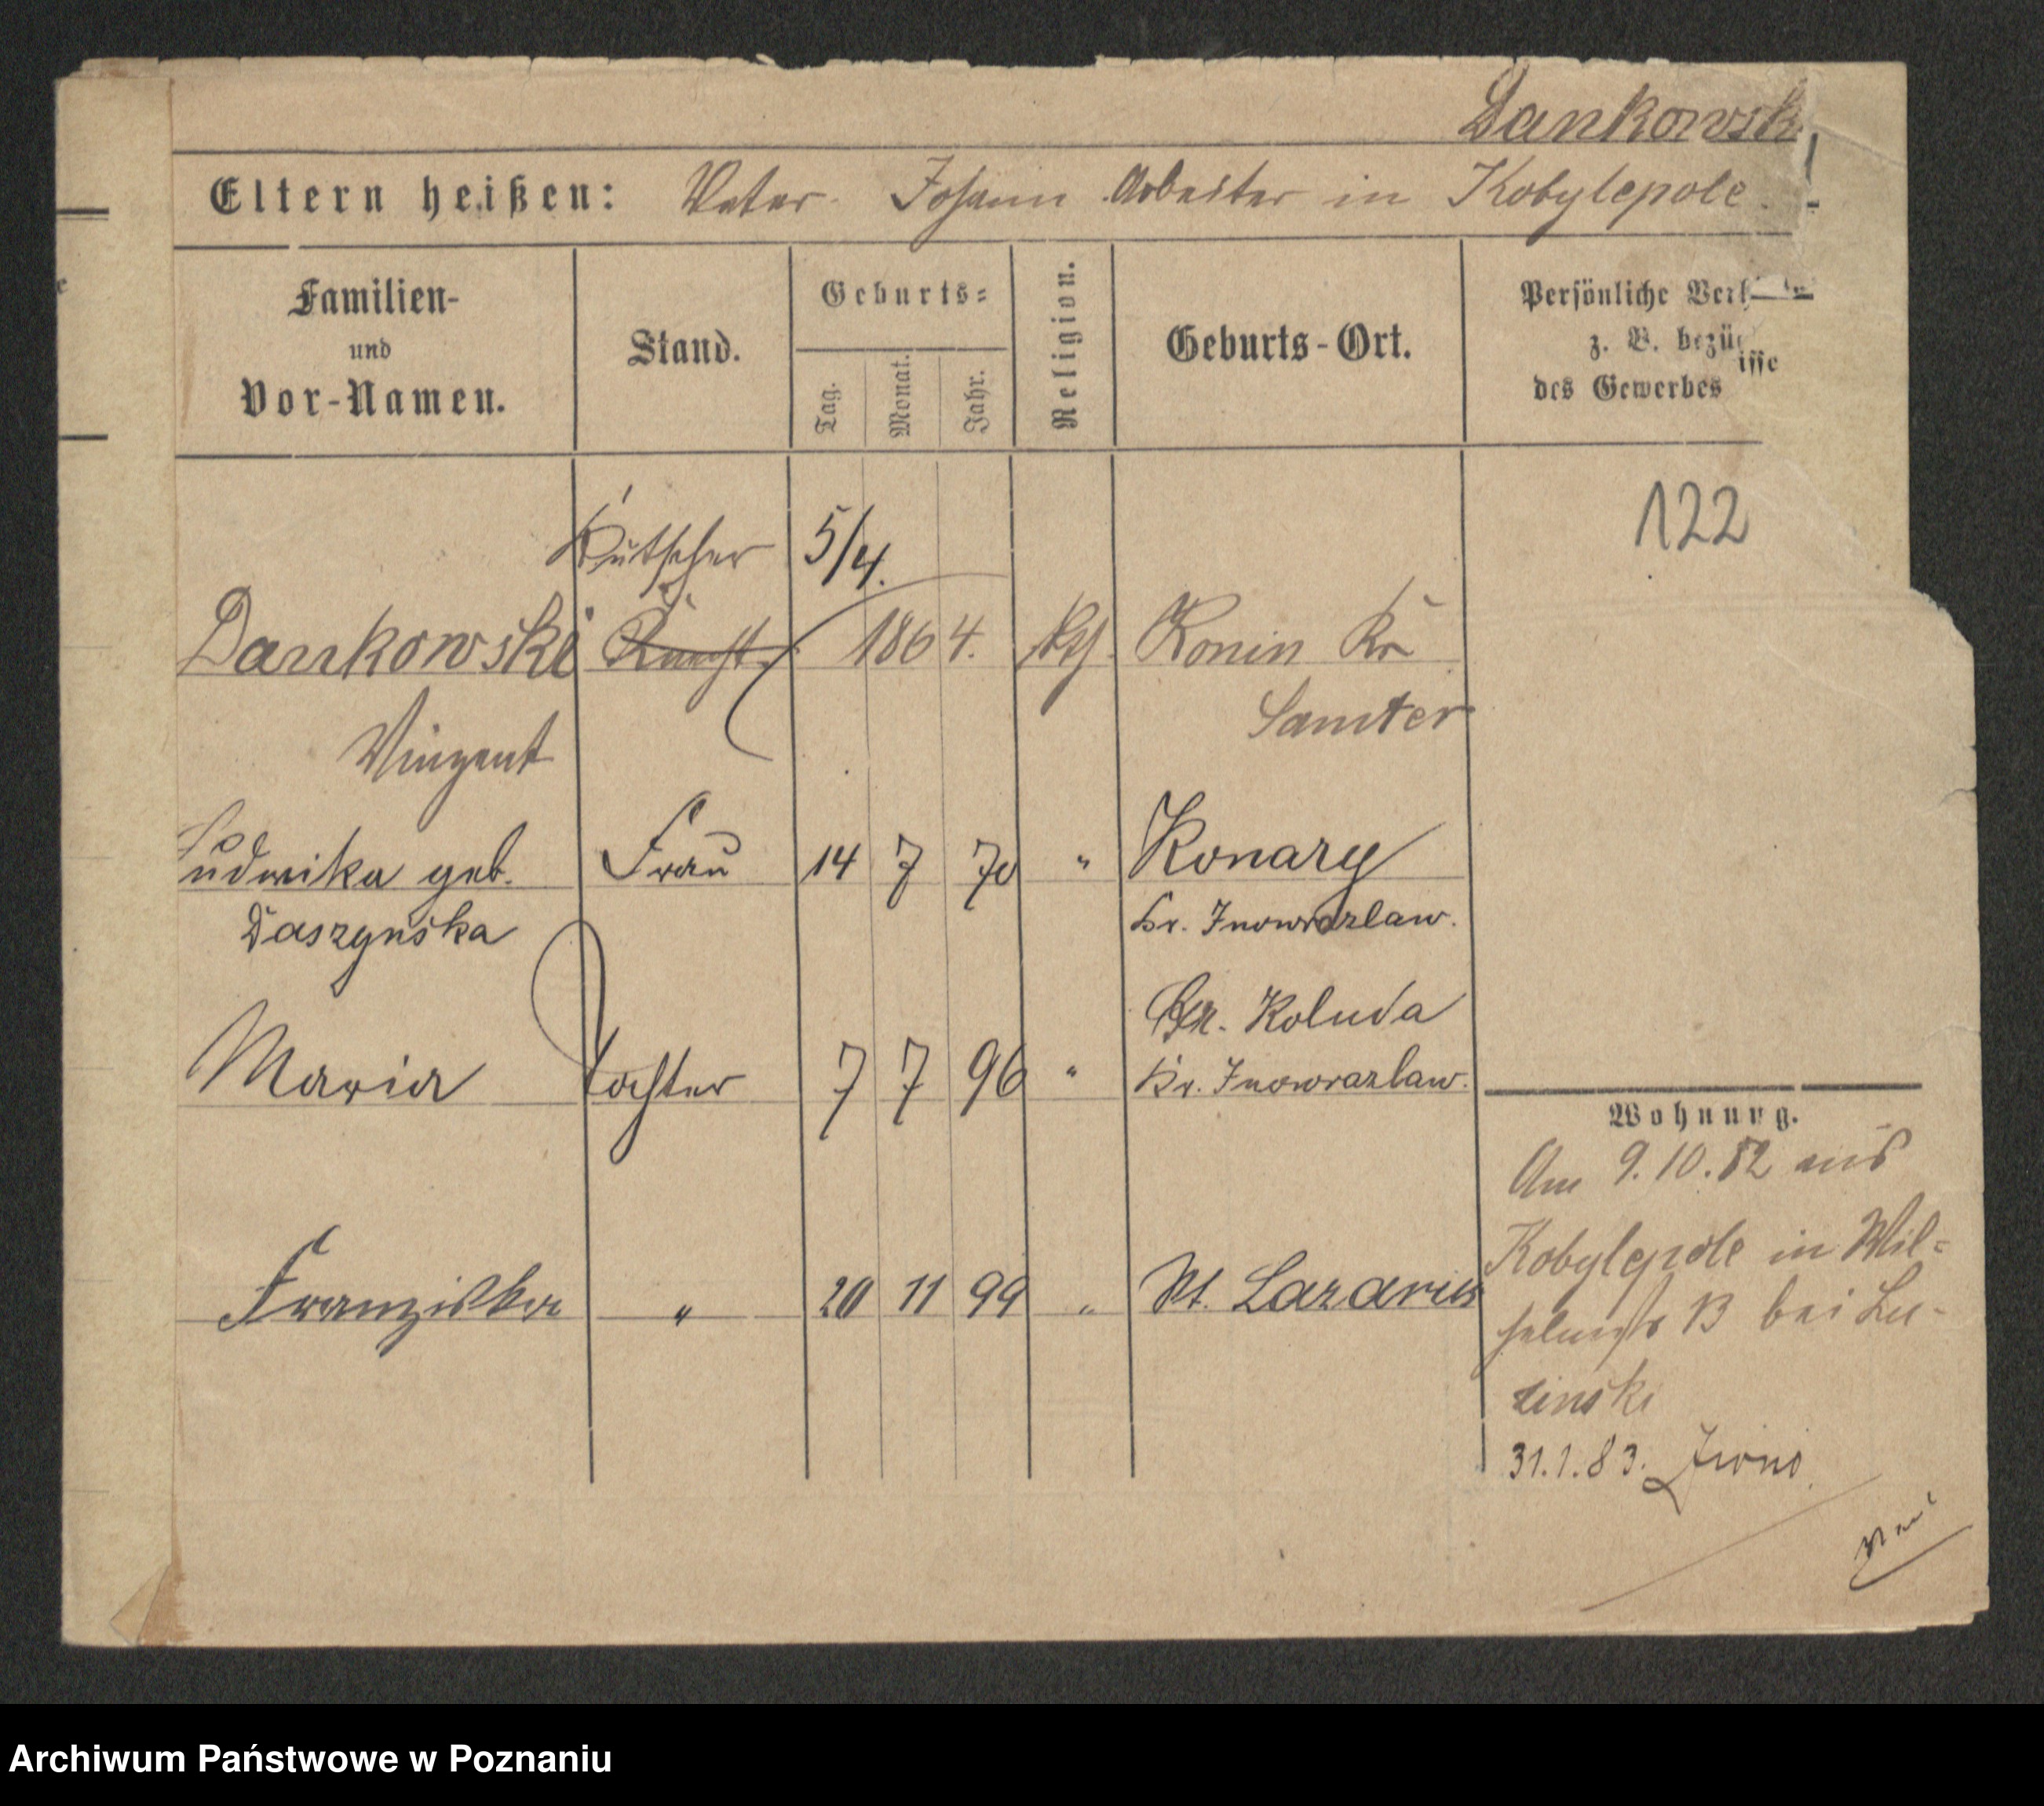 Dankowski
Eltern heißen: Vater. Johann Arbeiter in Kobylepole.
Familien-
und
Vor-Namen.
Stand.
Geburts-
Tag.
Monat.
Jahr.
Religion.
Geburts-Ort.
Persönliche
z. B.
des Gewerbes
122
Kutscher 5/4.
Dankowski 1864. kth. Konin Kr
Samter
Vinzent
Ludwika geb. Frau 14 7 70 " Konary
Daszynska Kr. Inowrazlaw.
Gr. Koluda
Maria Tochter 7 7 96 " Kr. Inowrazlaw.
Franziska " 20 11 99 " St. Lazarus
Wohnung.
Am 9.10.82 aus
Kobylepole in Wil-
helmstr 13 bei Lu-
zinski
31.1.83.
Archiwum Państwowe w Poznaniu